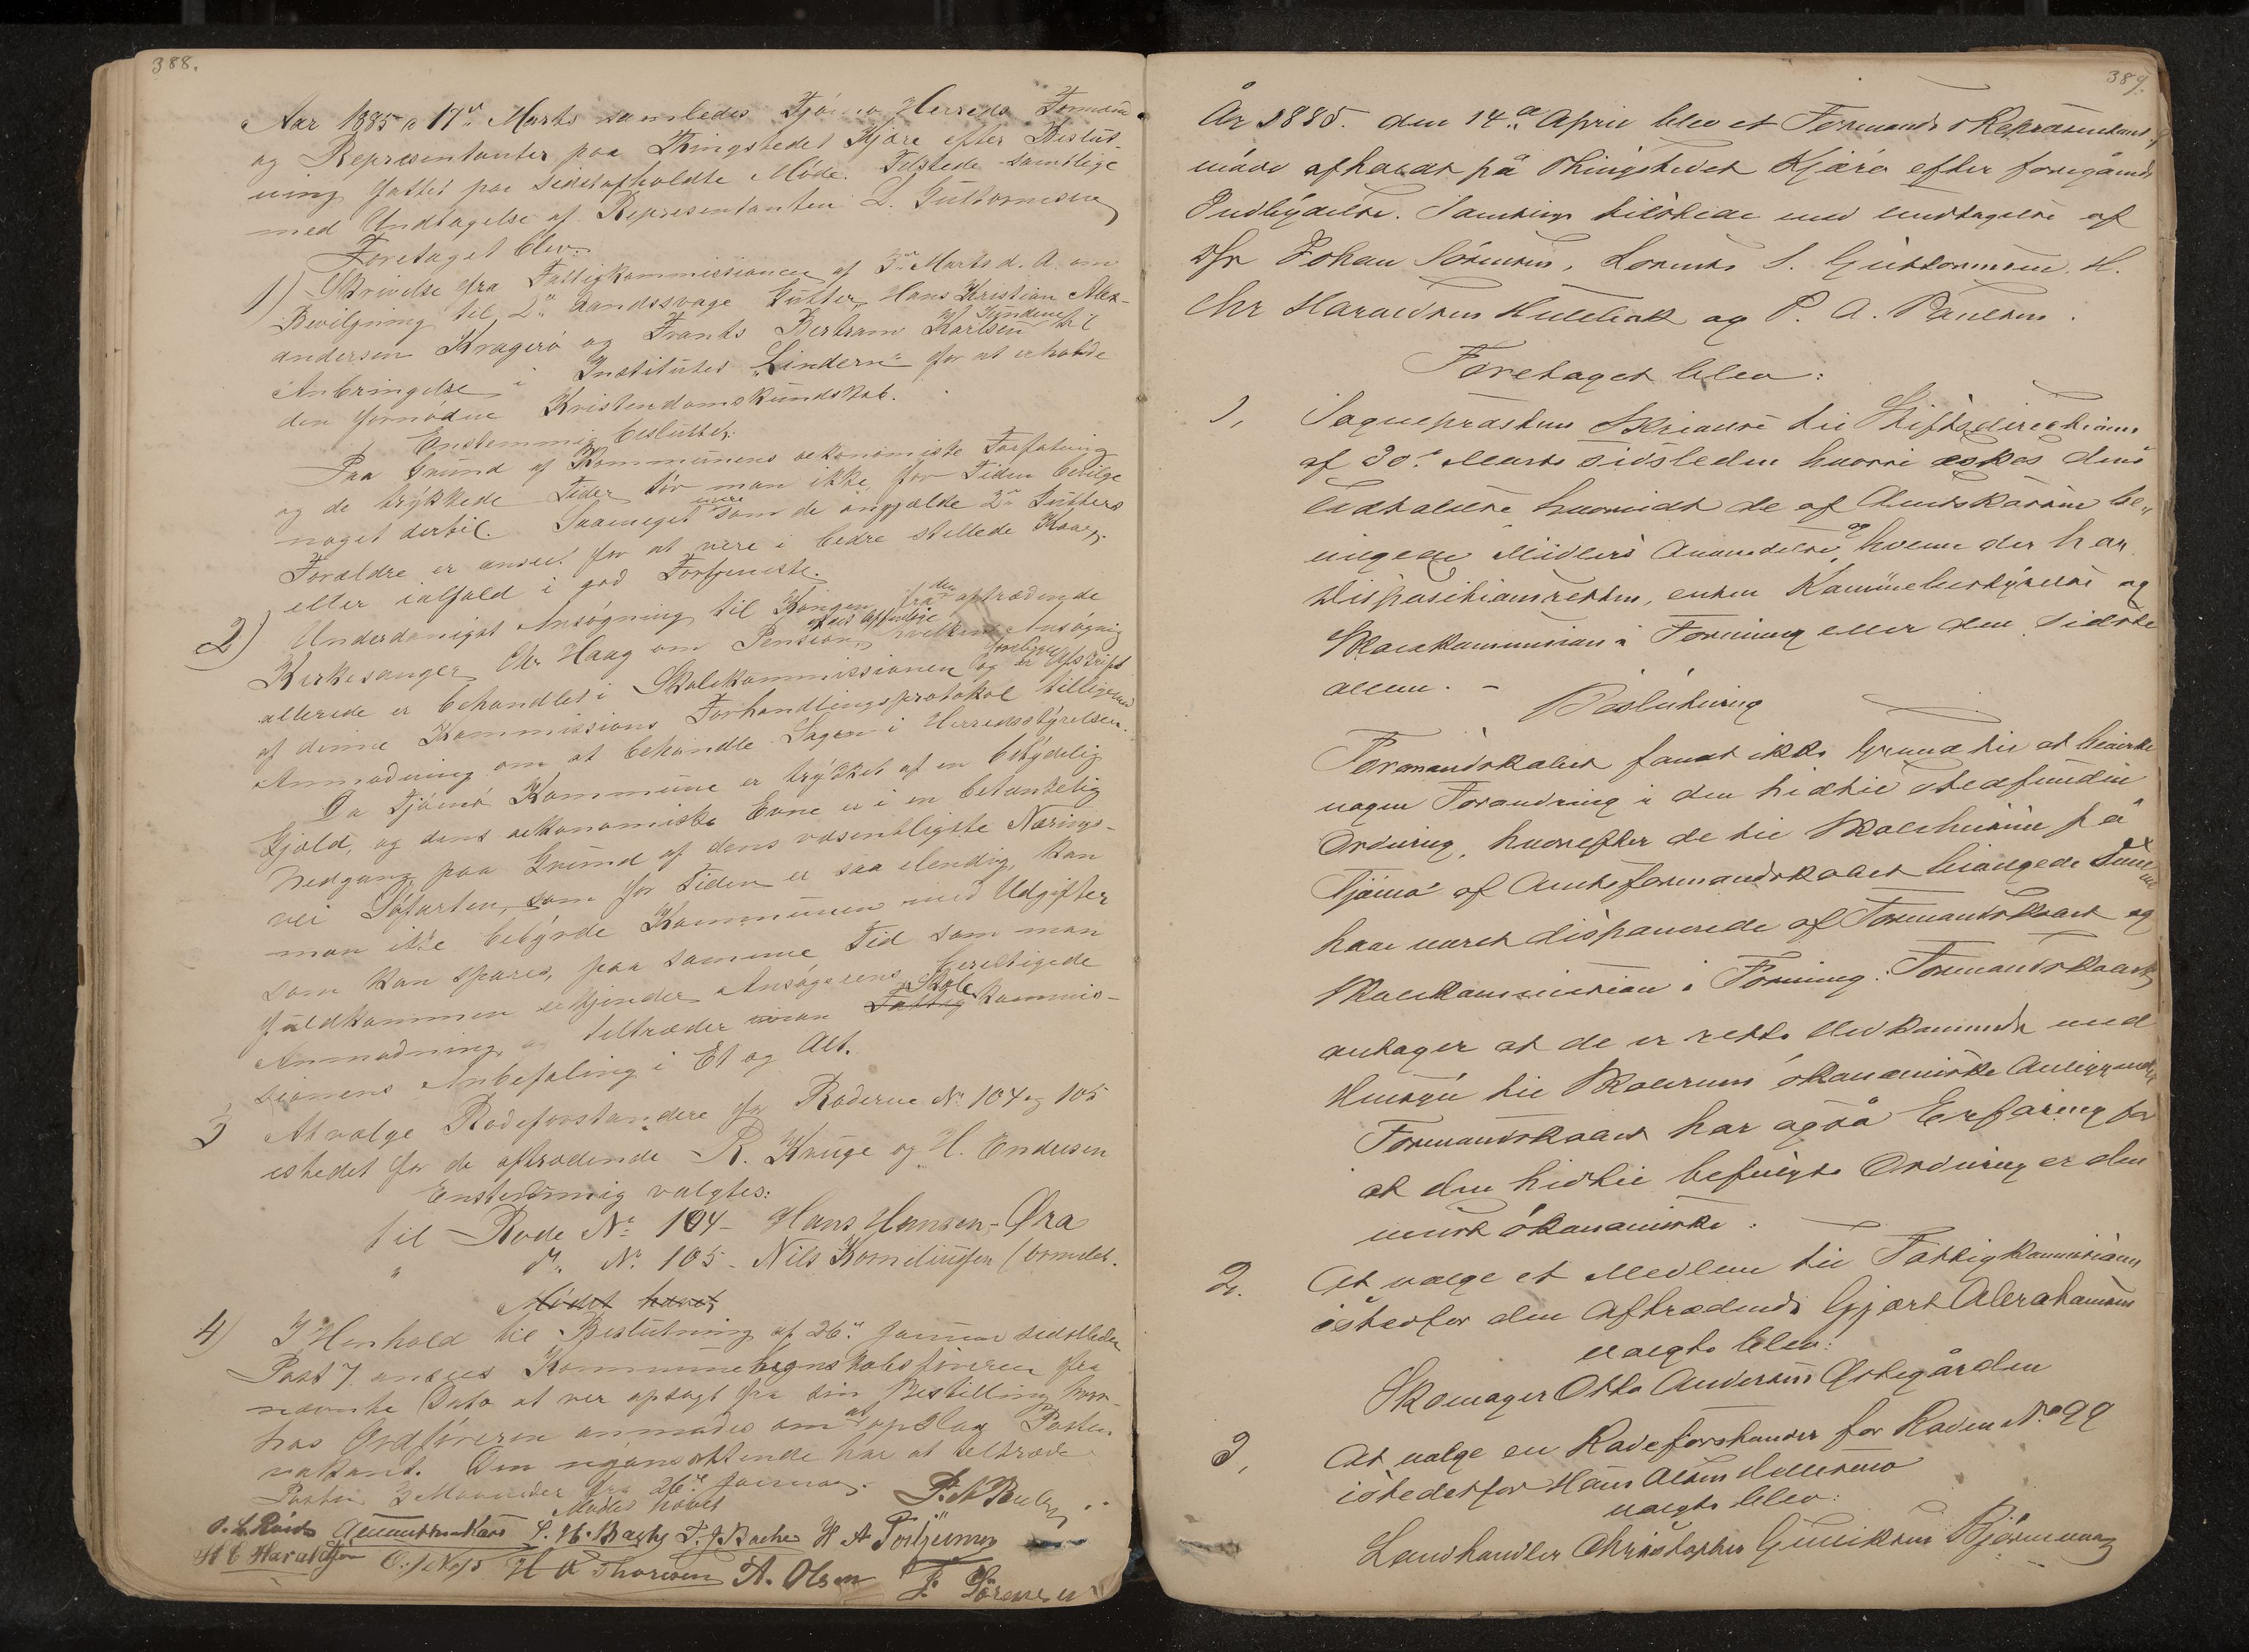 388.
Aar 1885 d 17de Marts samledes Tjömö Herreds Formænd
og Representanter paa Thingstedet Kjære efter Beslut-
ning fattet paa sidstafholdte Möde. Tilstede samtlige
med Undtagelse af Representanten L. Guttormsen
Foretaget blev:
1) Skrivelse fra Fattigkommissionen af 3de Marts d. A. om
Bevilgning til 2de aandssvage Gutter, Hans Kristian Alex-
andersen Kragerö og Frants Bertram Karlsen til
Anbringelse i Institutet "Lindern" for at erholde
den fornödne Kristendomskundskab.
Enstemmig besluttet:
Paa Grund af Kommunens oekonomiske Forfatning
og de trykkede Tider tör man ikke for Tiden bevilge
noget dertil. Saameget mere som de angjælde 2de Gutters
Forældre er anseet for at være i bedre stillede Kaar,
eller ialfald i god Fortjeneste.
2) Underdanigst Ansögning til Kongen fra den aftrædende
Kirkesanger Chr Haag om Pension, hvilken Ansögning
allerede er behandlet i Skolekommissionen og er Afskrift
af denne Kommissions Forhandlingsprotokol tilligemed
Anmodning om at behandle Sagen i Herredsstyrelsen.
Da Tjömö Kommune er trykket af en betydelig
Gjæld, og dens oekonomiske Evne er i en betænkelig
Nedgang paa Grund af dens væsentligste Nærings-
vei Söfarten, som for Tiden er saa elendig, kan
man ikke bebyrde Kommunen med Udgifter
som kan spares, paa samme Tid som man
fuldkommen erkjender Ansögerens berettigede
Anmodning og tiltræder man Fattig Skole kommis-
sionens Anbefaling i Et og Alt.
3 At vælge Rodeforstandere for Roderne No 104 og 105
istedet for de aftrædende R. Kruge og H. Endresen
Enstemmig valgtes:
til Rode No 104 - Hans Hansen - Øra
" do No 105 - Nils Korneliussen Ormelet.
Mödet hævet
4) I Henhold til Beslutning af 26de Januar sidstleden
Post 7 ansees Kommuneregnskabsföreren fra
nævnte Dato at vær opsagt fra sin Bestilling hvor-
hos Ordföreren anmodes om at opslaa Posten
vakant. Den nyansættende har at tiltræde
Posten 3 Maaneder fra 26de Januar.
Mödet hævet
L. H. Bache T. J. Bache
H C Haraldsen H A Thoresen A. Olsen J. Sörensen
389.
År 1885. den 14de April blev et Formands & Repræsentant
möde afholdt på Thingstedet Kjærø efter foregående
Indbydelse. Samtlige tilstede med undtagelse af
Hr Johan Sörensen, Lorents S. Guttormsen, H.
Chr Haraldsen Hulebak og P. A. Paulsen.
Foretaget blev:
1, Sognepræstens Skrivelse til Stiftsdirectionen
af 30te Marts sidstleden hvori æskes dens
Udtalelse hvorvidt de af Amtskassen be"
vilgede Midlers Anvendelse og hvem der har
Dispositionsretten, enten Kommunebestyrelse og
Skolekommission i Forening eller den sidste
alene. -
Beslutning
Formandskabet fandt ikke Grund til at bevirke
nogen Forandring i den hidtil stedfundne
Ordning, hvorefter de til Skolehusene på
Tjömö af Amtsformandskabet bevilgede Summer
have været disponerede af Formandskabet og
Skolekommission i Forening. Formandskabet
antager at de er rette Vedkommende med
Hensyn til Skolernes ökonomiske Anliggender
Formandskabet har også Erfaring for
at den hidtil befulgte Ordning er den
mest ökonomiske.
2. At vælge et Medlem til Fattigkommissionen
istedfor den Aftrædende Gjært Abrahamsen
valgte blev:
Skomager Otto Andersen Østegården
3, At vælge en Rodeforstander for Roden No 99
istedetfor Hans Olsen
valgte blev:
Landhandler Christopher Gunüksen Bjørnevaag